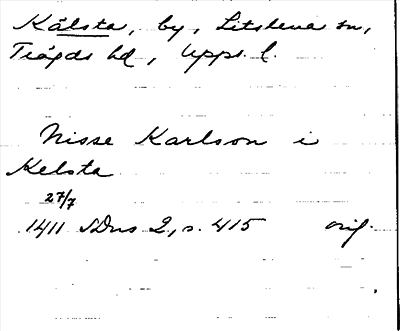 Kälsta, by, Litslena sn,
Trögds hd, Upps. l.
Nisse Karlson i
Kelsta
27/7
1411 SDns 2, s. 415 orig.